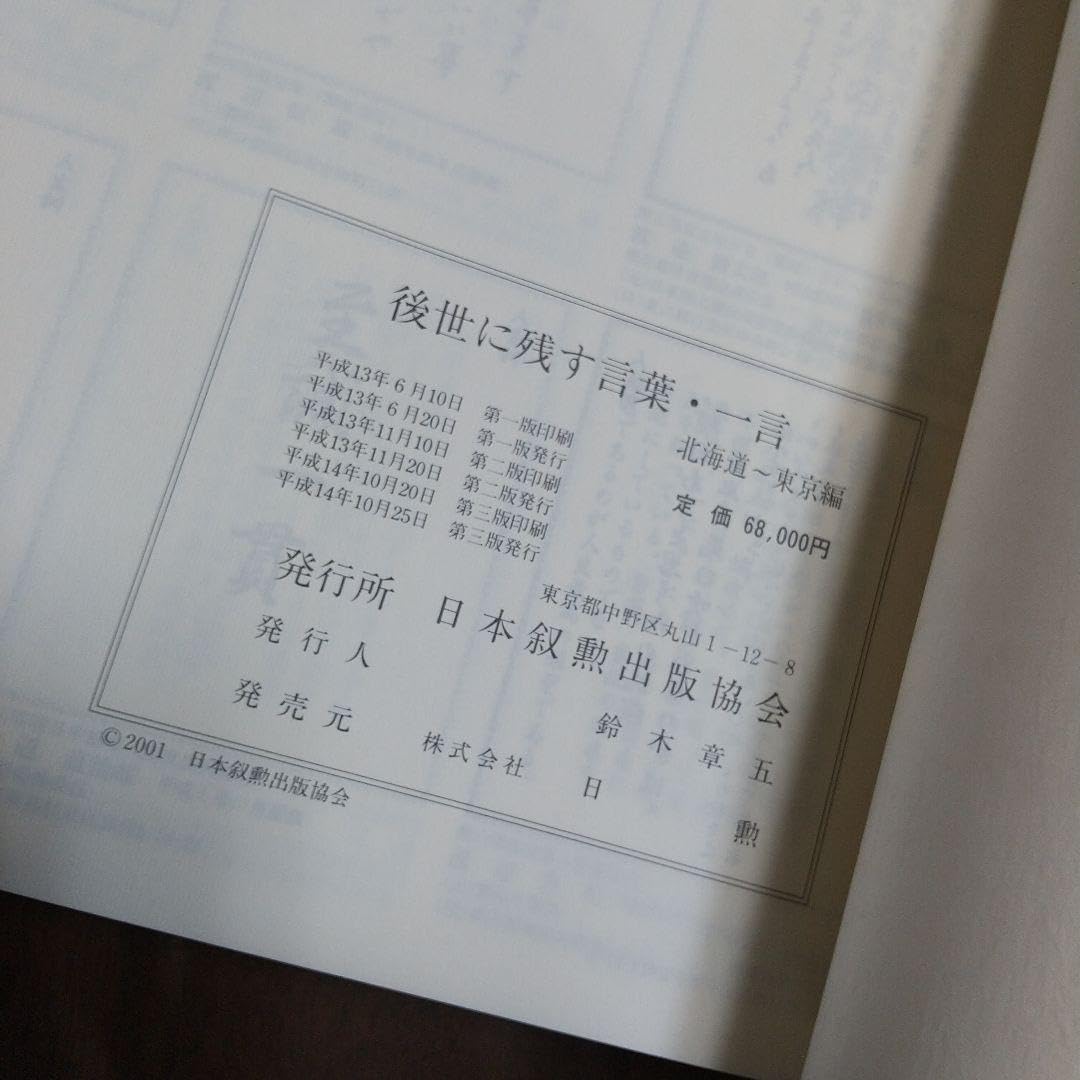 後世に残す言葉・一言
北海道～東京編
平成13年6月10日 第一版印刷
平成13年6月20日 第一版発行
平成13年11月10日 第二版印刷
平成13年11月20日 第二版発行
平成14年10月20日 第三版印刷
平成14年10月25日 第三版発行
定価 68,000円
東京都中野区丸山1-12-8
発行所 日本叙勲出版協会
発行人 鈴木章五
発売元 株式会社 日勲
©2001 日本叙勲出版協会